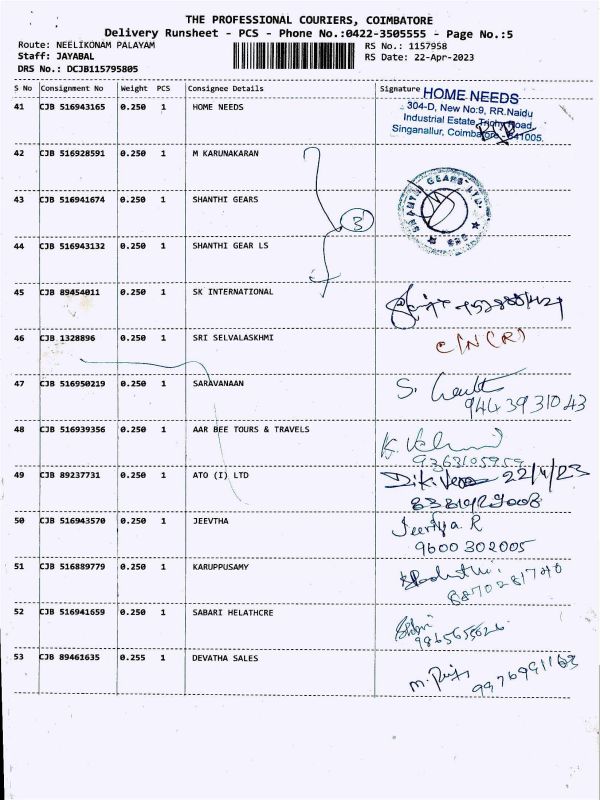 THE PROFESSIONAL COURIERS, COIMBATORE
Delivery Runsheet - PCS - Phone No.:0422-3505555 - Page No.:5
Route: NEELIKONAM PALAYAM RS No.: 1157958
Staff: JAYABAL RS Date: 22-Apr-2023
DRS No.: DCJB115795805
S No Consignment No Weight PCS Consignee Details Signature
HOME NEEDS
304-D, New No:9, RR.Naidu
Industrial Estate, Trichy Road,
Singanallur, Coimbatore - 641005.
41 CJB 516943165 0.250 1 HOME NEEDS
42 CJB 516928591 0.250 1 M KARUNAKARAN
43 CJB 516941674 0.250 1 SHANTHI GEARS
SHANTHI GEARS LTD.
3
44 CJB 516943132 0.250 1 SHANTHI GEAR LS
45 CJB 89454011 0.250 1 SK INTERNATIONAL
46 CJB 1328896 0.250 1 SRI SELVALASKHMI C/N (R)
47 CJB 516950219 0.250 1 SARAVANAAN S.
9443931043
48 CJB 516939356 0.250 1 AAR BEE TOURS & TRAVELS K.
9363105959
49 CJB 89237731 0.250 1 ATO (I) LTD 22/4/23
50 CJB 516943570 0.250 1 JEEVTHA Jeevtya. R
9600302005
51 CJB 516889779 0.250 1 KARUPPUSAMY
8870281740
52 CJB 516941659 0.250 1 SABARI HELATHCRE
9865655626
53 CJB 89461635 0.255 1 DEVATHA SALES
9976991163